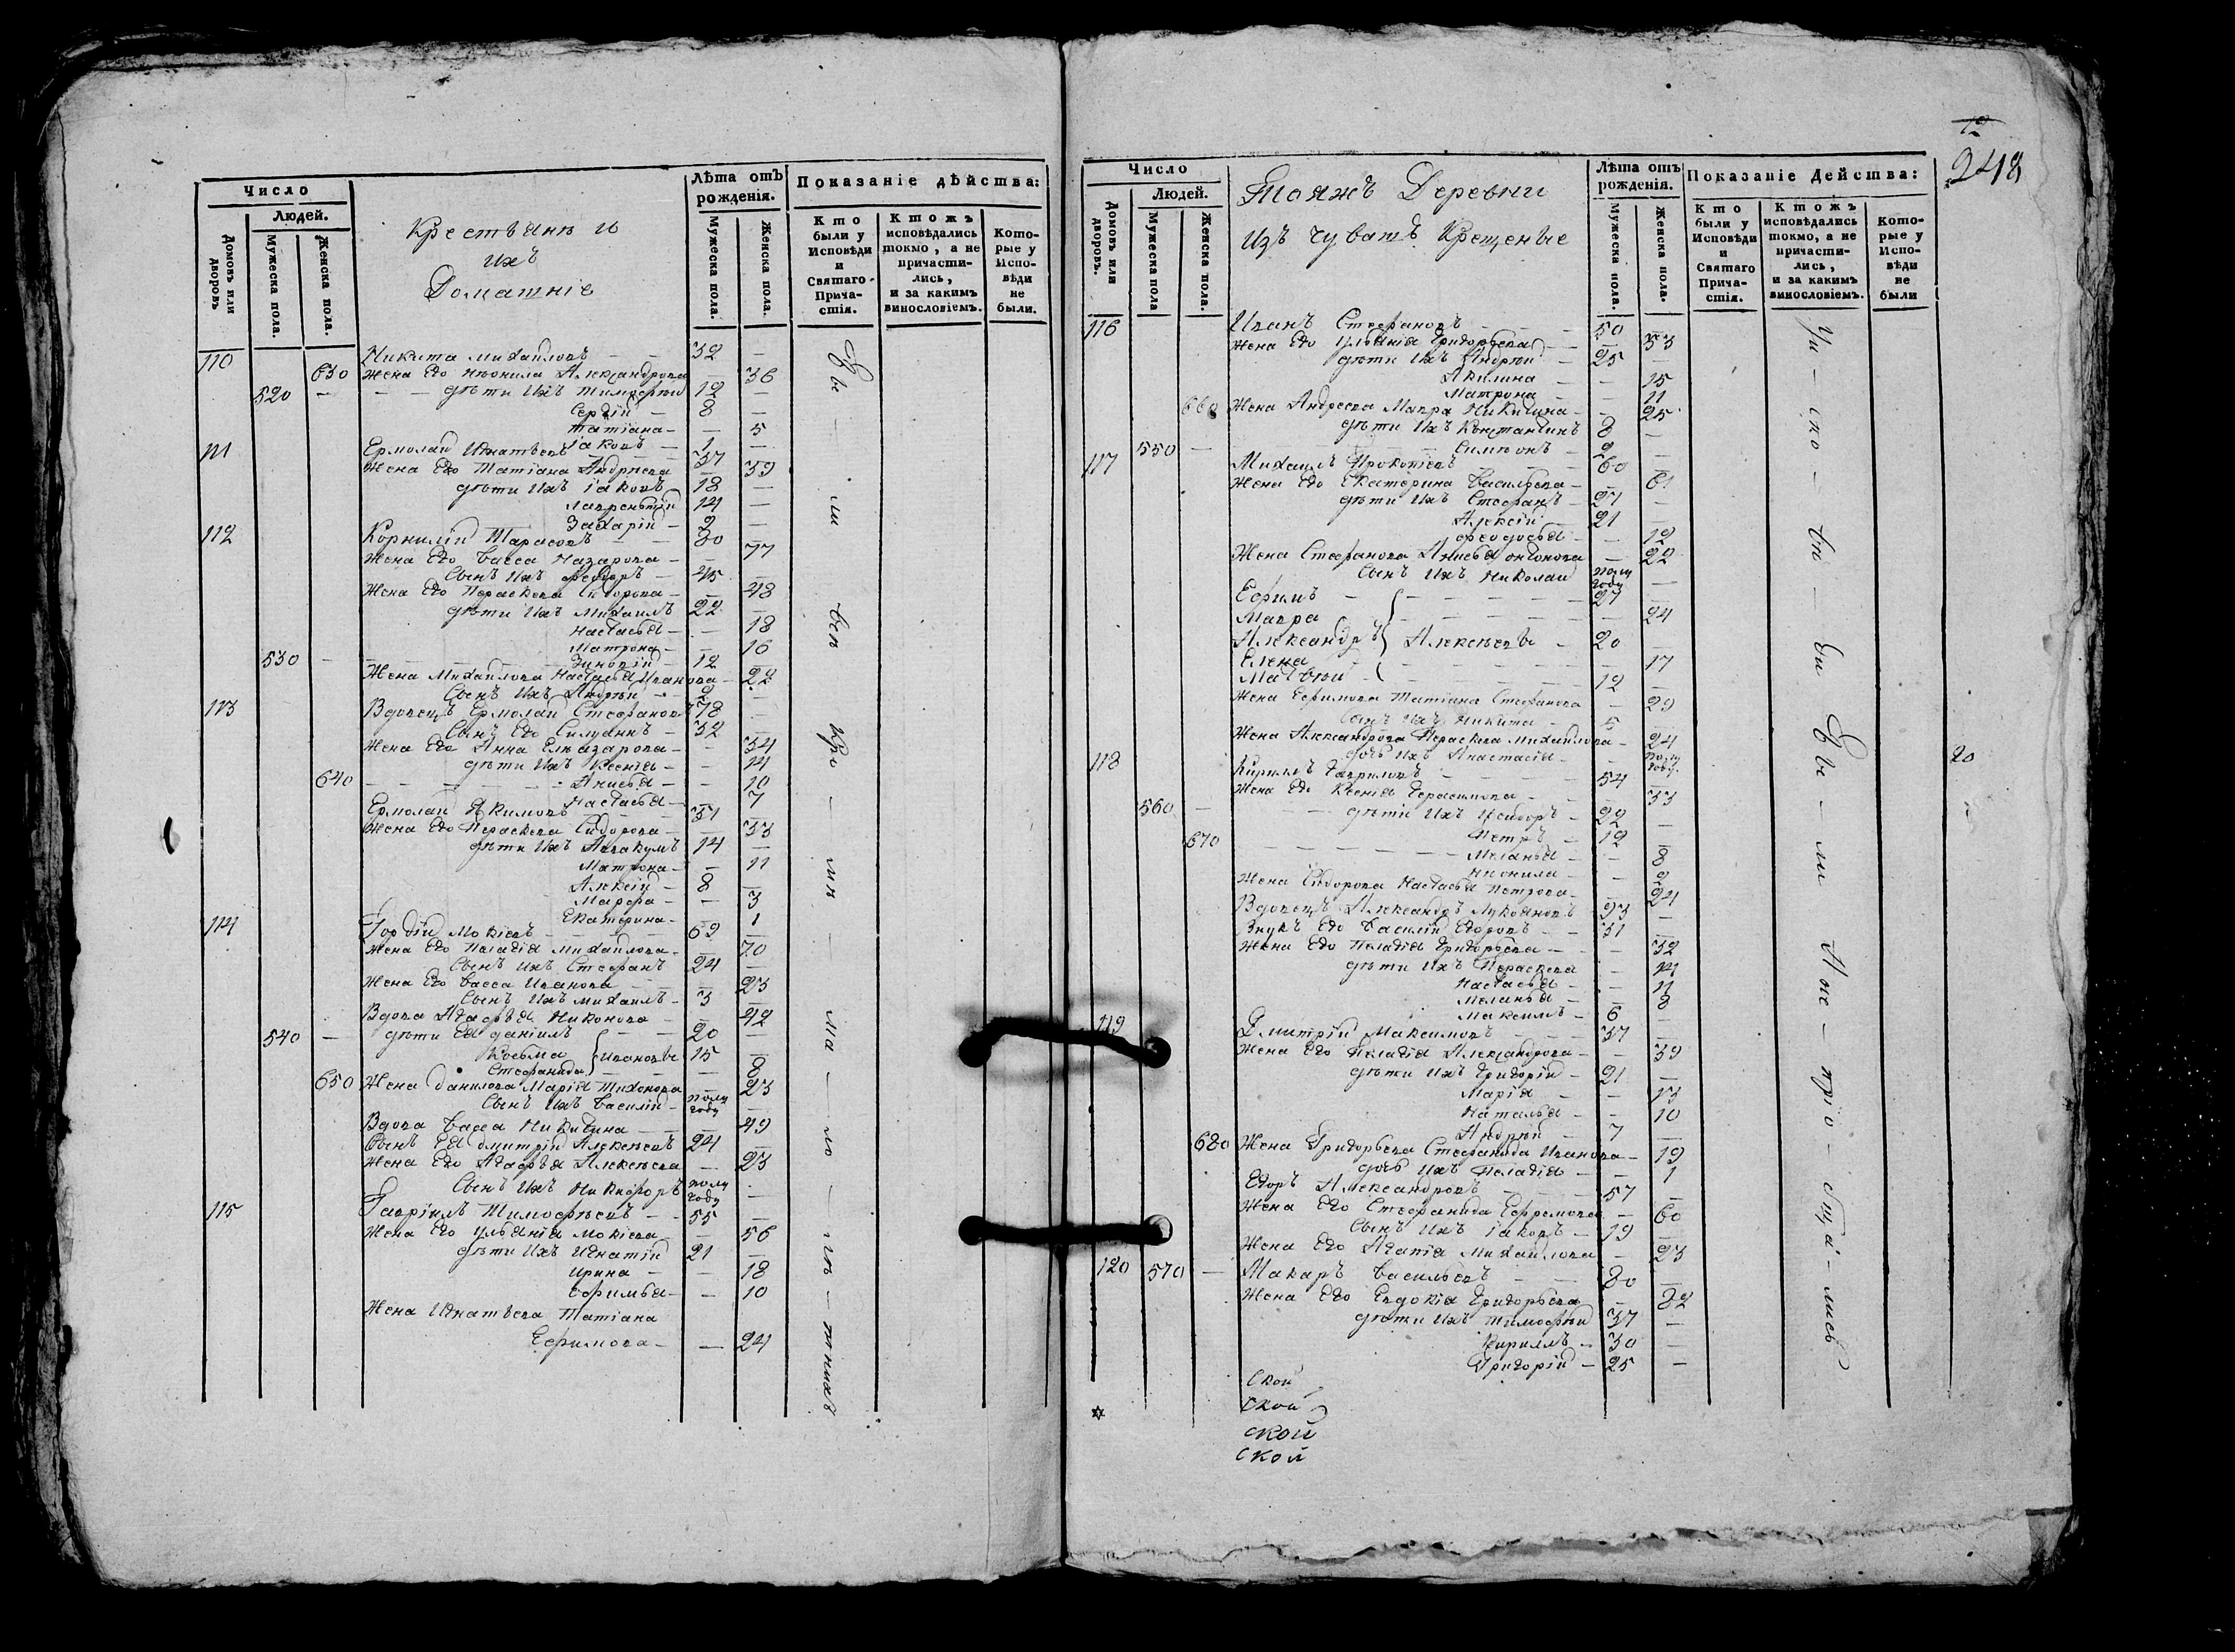 Число
Людей.
Домовъ или дворовъ
Мужеска пола.
Женска пола.
Крестьянѣ и
ихъ
Домашніе
Лѣта отъ рожденія.
Мужеска пола.
Женска пола.
Показаніе дѣйства:
Кто были у Исповѣди и Святаго Прича-стія.
Ктожъ исповѣдались токмо, а не причасти-лись, и за какимъ винословіемъ.
Кото-рые у Испо-вѣди не были.
110 Никита Михайловъ - 32 -
630 Жена его Неонила Александрова - 36
520 - дѣти ихъ Тимофѣй 12 -
Сергій - 8 -
Татіана - - 5
Іаковъ - 1 -
111 Ермолай Игнатьевъ 37 -
Жена его Татіана Андрѣева - 39
дѣти ихъ Іаковъ 18 -
Лаврентій 14 -
Захарій - 2 -
112 Корнилій Тарасовъ - 80 -
Жена его Васса Назарова - - 77
Сынъ ихъ Федоръ - 45 -
Жена его Параскева Сидорова - - 48
дѣти ихъ Михаилъ 22 -
Настасья - - 18
Матрона - - 16
530 - Зиновій - 12 -
Жена Михайлова Настасья Иванова - 22
Сынъ ихъ Андрѣй - 2 -
113 Вдовецъ Ермолай Стефановъ 78 -
Сынъ его Силуанъ - 52 -
Жена его Анна Елеазарова - - 54
дѣти ихъ Ксенія - - 14
640 - Анисья - - 10
Настасья - 7
Ермолай Якимовъ 37 -
Жена его Параскева Сидорова - - 33
дѣти ихъ Аввакумъ 14 -
Матрона - - 11
Алексій - 8 -
Марфа - - 3
Екатерина - 1
114 Гордій Мокіевъ - 69 -
Жена его Пелагія Михайлова - - 70
Сынъ ихъ Стефанъ 24 -
Жена его Васса Иванова - 23
Сынъ ихъ Михаилъ - 3 -
Вдова Агафья Никонова - 42
540 - дѣти ея Даніилъ 20 -
Косьма } Ивановы 15 -
Стефанида - 8
650 Жена Данилова Марія Тихонова - 23
Сынъ ихъ Василій - полу году -
Вдова Васса Никитина - 49
Сынъ ея Дмитрій Алексѣевъ 24 -
Жена его Агафья Алексѣева - 23
Сынъ ихъ Никифоръ полу году -
115 Гавріилъ Тимофѣевъ - 55 -
Жена его Ульянія Мокіева - - 56
дѣти ихъ Игнатій 21 -
Ирина - - 18
Ефимья - - 10
Жена Игнатьева Татіана
Ефимова - - 24
248
Число
Людей.
Домовъ или дворовъ.
Мужеска пола
Женска пола.
Тояжъ Деревни
изъ чувашъ Крещеные
Лѣта отъ рожденія.
Мужеска пола.
Женска пола.
Показаніе Действа:
Кто были у Исповѣди и Святаго Прича-стія.
Ктожъ исповѣдались токмо, а не причасти-лись, и за какимъ винословіемъ.
Кото-рые у Испо-вѣди не были
116 Иванъ Стефановъ 50 -
Жена его Ульянія Григорьева - 53
дѣти ихъ Андрѣй - 25 -
Акилина - - 15
Матрона - - 11
660 Жена Андреева Мавра Никитина - - 25
дѣти ихъ Константинъ 8 -
550 - Симеонъ - 2 -
117 Михаилъ Прокопіевъ 60 -
Жена его Екатерина Васильева - - 61
дѣти ихъ Стефанъ - 27 -
Алексій - 21 -
Феодосья - - 12
Жена Стефанова Анисья Антонова - 22
Сынъ ихъ Николай полу году -
Ефимъ - 27 -
Мавра - 24
Александръ } Алексѣевы - 20 -
Елена - 17
Матвѣй - 12 -
Жена Ефимова Татіана Стефанова - 29
Сынъ ихъ Никита - 5 -
Жена Александрова Параскева Михайлова - 24
дочь ихъ Анастасія - - полу году.
118 Кириллъ Гавриловъ 54 -
Жена его Ксенія Герасимова - 53
560 - дѣти ихъ Исидоръ - 22 -
Петръ - 12 -
670 - Меланья - - 8
Неонила - - 2
Жена Сидорова Настасья Петрова - 24
Вдовецъ Александръ Лукояновъ 93 -
Внукъ его Василій Егоровъ - 31 -
Жена его Пелагія Григорьева - - 32
дѣти ихъ Параскева - 14
Настасья - - 11
Меланья - - 8
Максимъ - 6 -
119 Дмитрій Максимовъ 37 -
Жена его Пелагія Александрова - - 39
дѣти ихъ Григорій - 21 -
Марія - - 13
Наталья - - 10
Андрѣй - 7 -
680 Жена Григорьева Стефанида Иванова - 19
дочь ихъ Пелагія - - 1
Егоръ Александровъ 57 -
Жена его Стефанида Ефремова - 60
Сынъ ихъ Іаковъ - 19 -
Жена его Агапія Михайлова - 23
120 570 - Макаръ Васильевъ 80 -
Жена его Евдокія Григорьева - 82
дѣти ихъ Тимофѣй 37 -
Кириллъ - 30 -
Григорій - 25 -
20
ской
ской
ской
ской